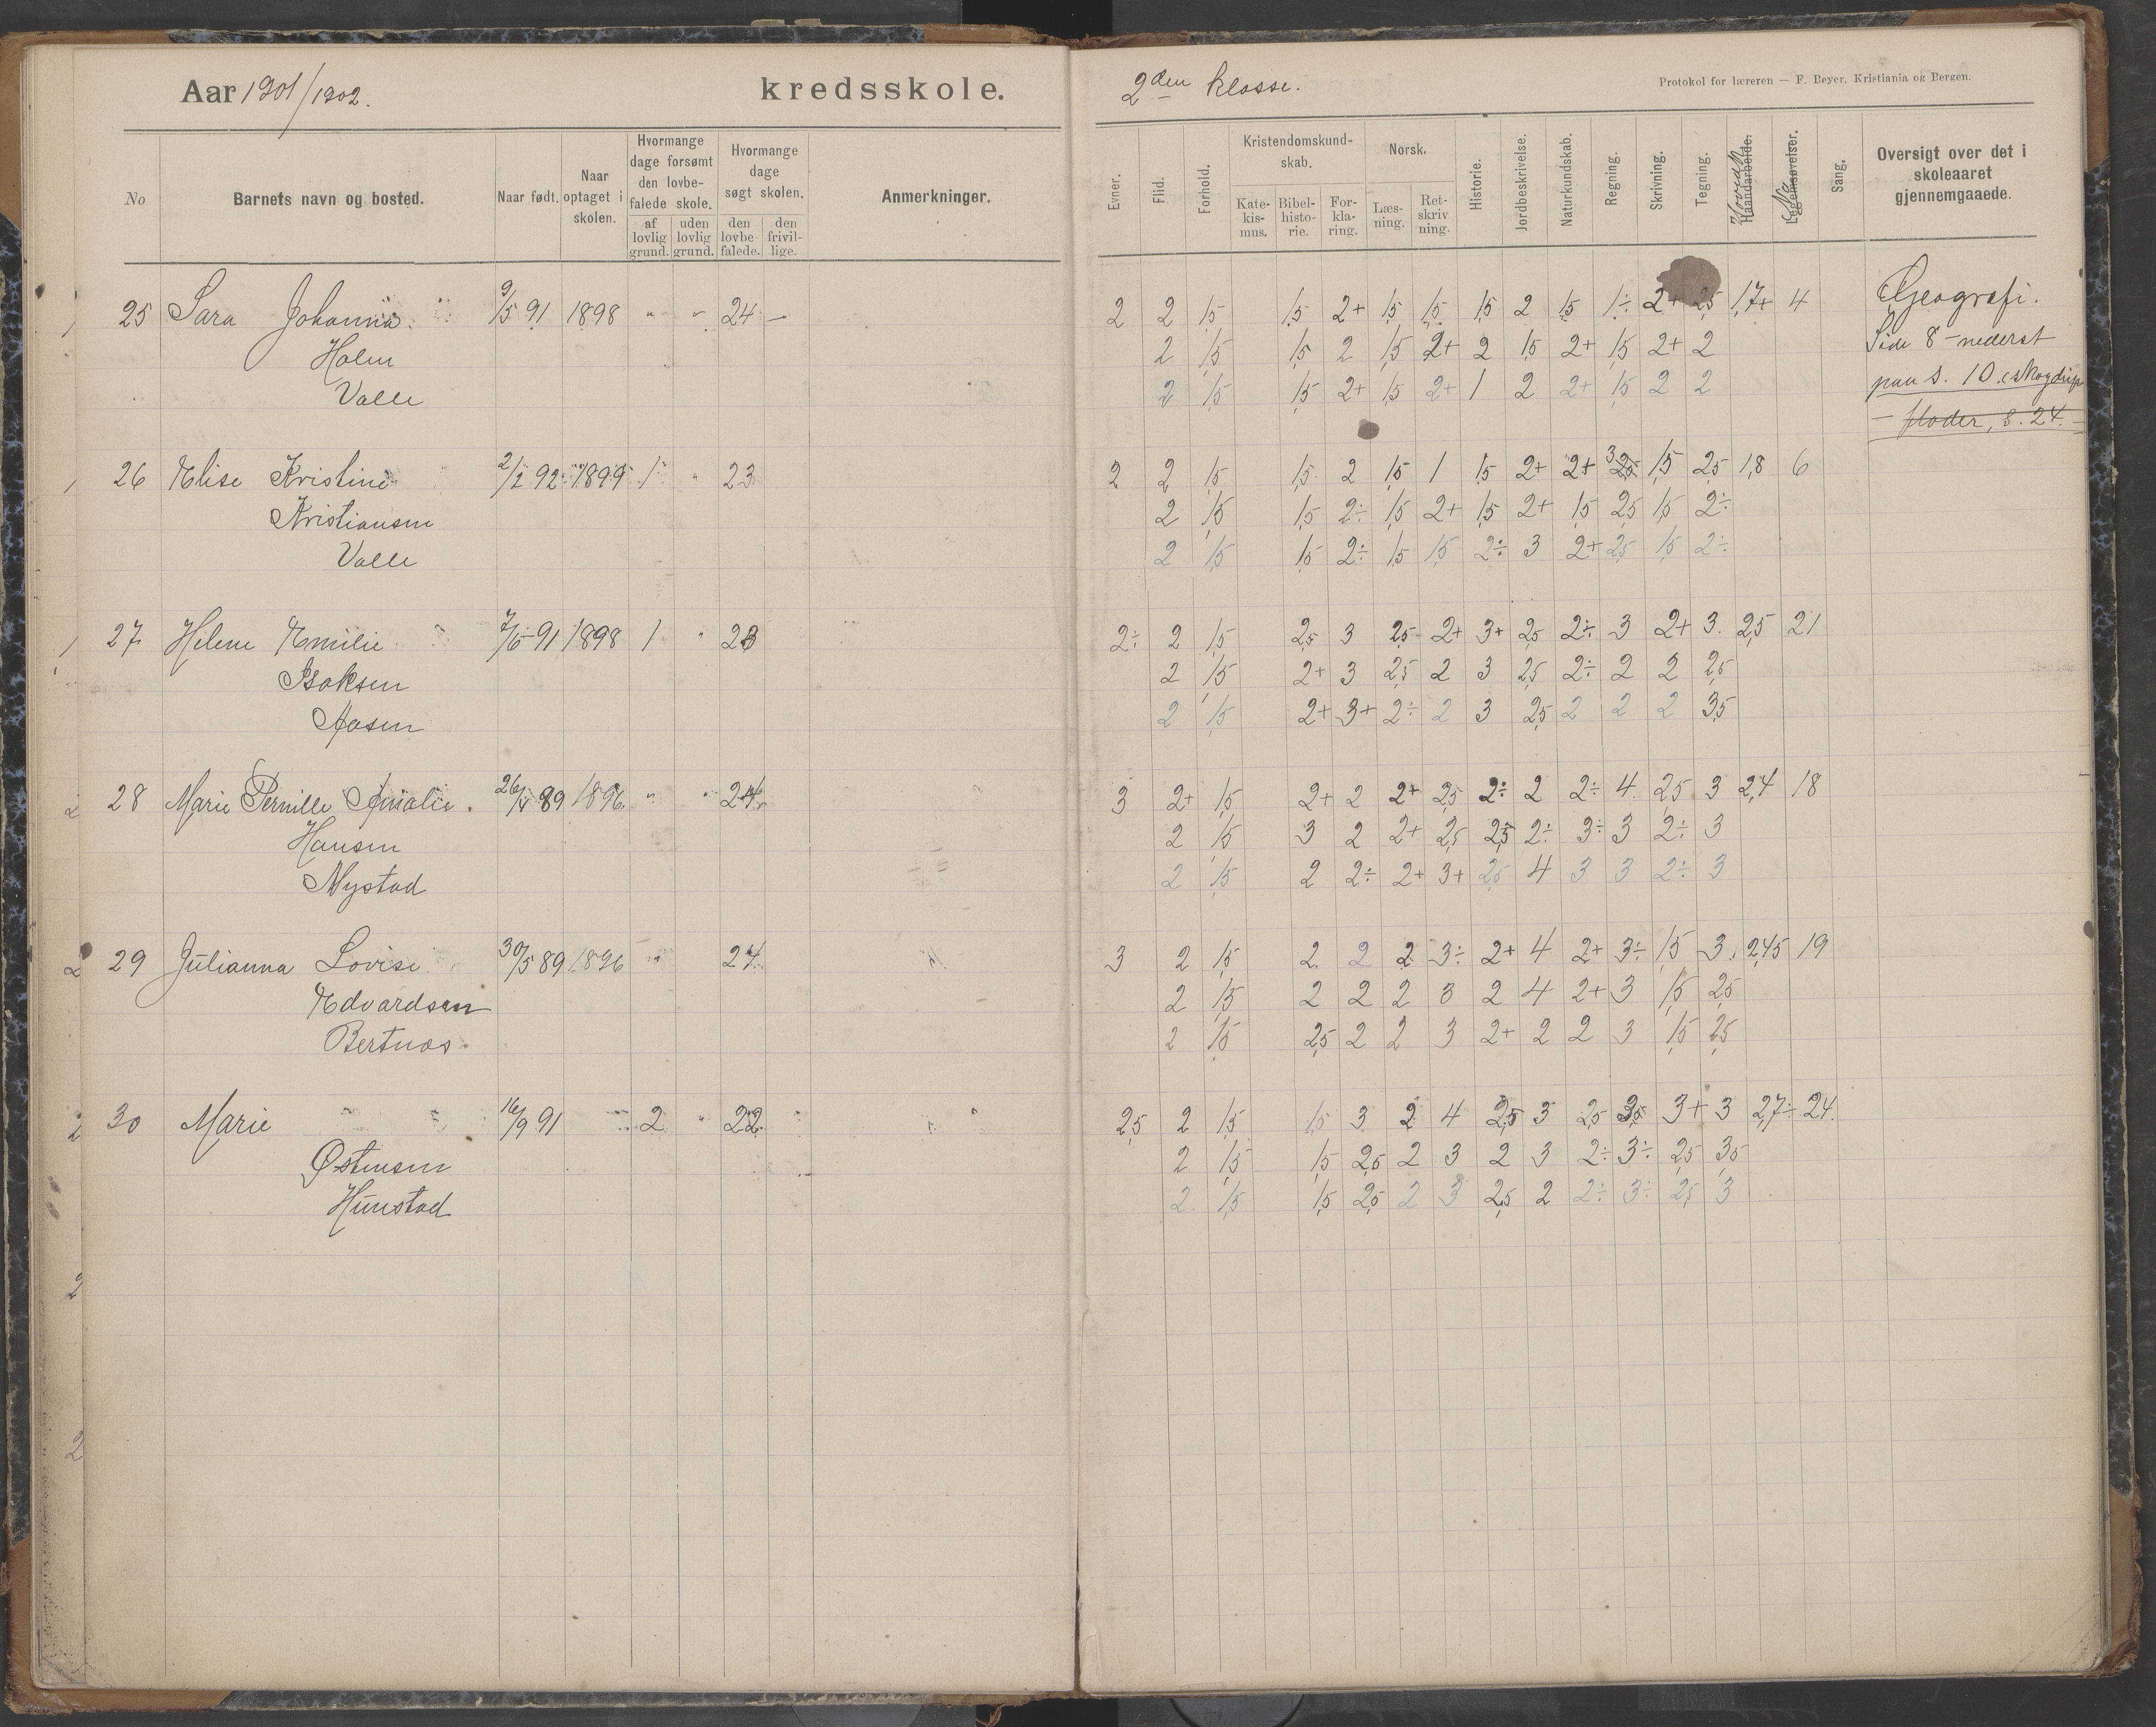 Aar 1901/1902. kredsskole. 2den klasse. Protokol for læreren — F. Beyer, Kristiania og Bergen.
No
Barnets navn og bosted.
Naar født.
Naar optaget i skolen.
Hvormange dage forsømt den lovbefalede skole.
af lovlig grund.
uden lovlig grund.
Hvormange dage søgt skolen.
den lovbefalede.
den frivillige.
Anmerkninger.
Evner.
Flid.
Forhold.
Kristendomskundskab.
Katekismus.
Bibelhistorie.
Forklaring.
Norsk.
Læsning.
Retskrivning.
Historie.
Jordbeskrivelse.
Naturkundskab.
Regning.
Skrivning.
Tegning.
Haandarbeide.
Hovedk
Legemsøvelser.
No
Sang.
Oversigt over det i skoleaaret gjennemgaaede.
25 Sara Johanna 9/5 91 1898 " " 24 — 2 2 1,5 1,5 2+ 1,5 1,5 1,5 2 1,5 1÷ 2+ 2,5 1,7+ 4 Geografi.
Holm 2 1,5 1,5 2 1,5 2+ 2 1,5 2+ 1,5 2+ 2 Side 8 – nederst
Valle 2 1,5 1,5 2+ 1,5 2+ 1 2 2+ 1,5 2 2 paa s. 10
– floder, s. 24. –
26 Elise Kristine 2/2 92 1899 1 " 23 2 2 1,5 1,5 2 1,5 1 1,5 2+ 2+ 3 2,5 1,5 2,5 1,8 6
Kristiansen 2 1,5 1,5 2÷ 1,5 2+ 1,5 2+ 1,5 2,5 1,5 2÷
Valle 2 1,5 1,5 2÷ 1,5 1,5 2÷ 3 2+ 2,5 1,5 2÷
27 Helene Emilie 7/6 91 1898 1 " 23 2÷ 2 1,5 2,5 3 2,5 2+ 3+ 2,5 2÷ 3 2+ 3 2,5 21
Isaksen 2 1,5 2+ 3 2,5 2 3 2,5 2÷ 2 2 2,5
Aasen 2 1,5 2+ 3+ 2÷ 2 3 2,5 2 2 2 3,5
28 Marie Pernille Amalie. 26/4 89 1896 " " 24 3 2+ 1,5 2+ 2 2+ 2,5 2÷ 2 2÷ 4 2,5 3 2,4 18
Hansen 2 1,5 3 2 2+ 2,5 2,5 2÷ 3÷ 3 2÷ 3
Mystad 2 1,5 2 2÷ 2+ 3+ 2,5 4 3 3 2÷ 3
29 Julianna Lovise 30/5 89 1896 " 24 3 2 1,5 2 2 2 3÷ 2+ 4 2+ 3÷ 1,5 3 2,45 19
Edvardsen 2 1,5 2 2 2 3 2 4 2+ 3 1,5 2,5
Bertnæs 2 1,5 2,5 2 2 3 2+ 2 2 3 1,5 2,5
30 Marie 16/9 91 2 " 22 2,5 2 1,5 1,5 3 2 4 2,5 3 2,5 3,5 3+ 3 2,7÷ 24.
Østensen 2 1,5 1,5 2,5 2 3 2 3 2÷ 3÷ 2,5 3,5
Hunstad 2 1,5 1,5 2,5 2 3 2,5 2 2÷ 3÷ 2,5 3